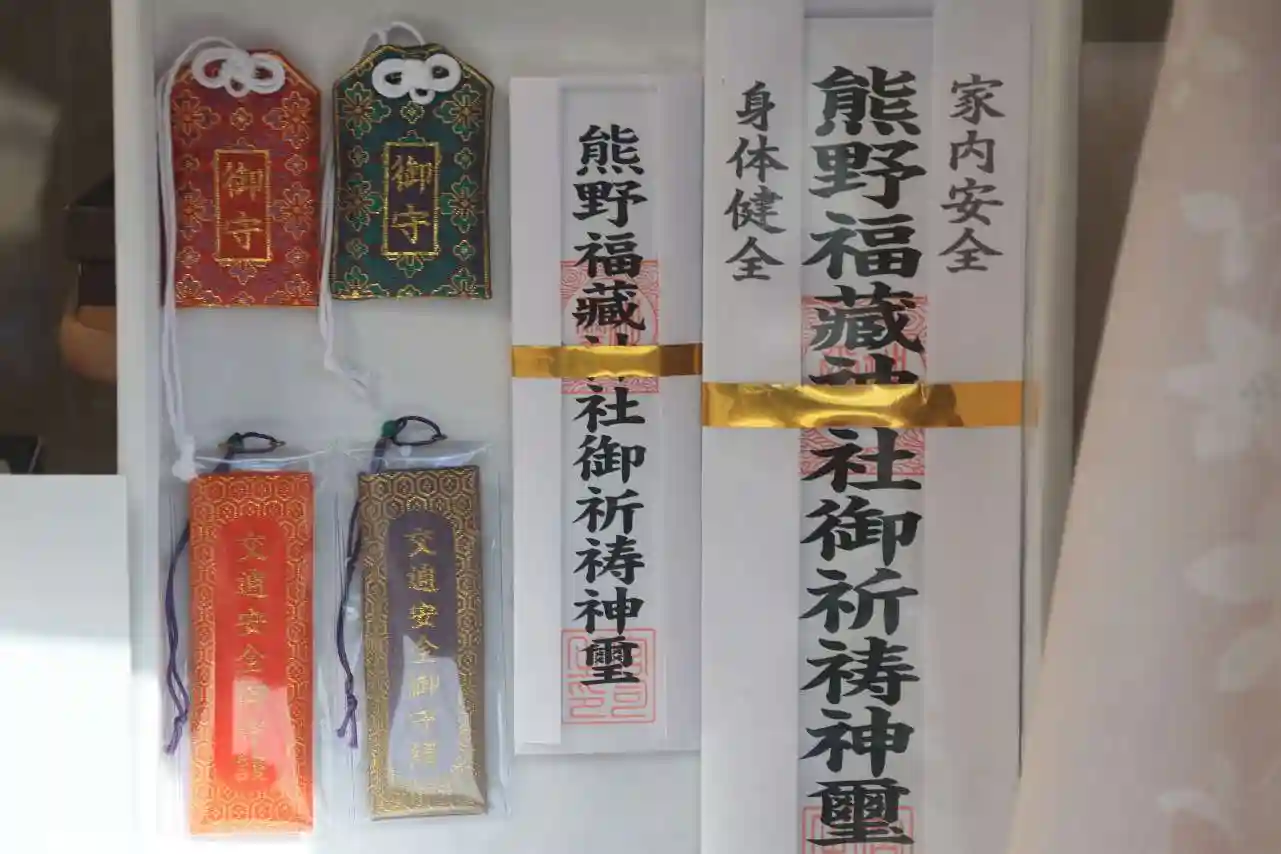 御守
御守
交通安全御守護
交通安全御守護
熊野福藏神社御祈祷神璽
家内安全
熊野福藏神社御祈祷神璽
身体健全